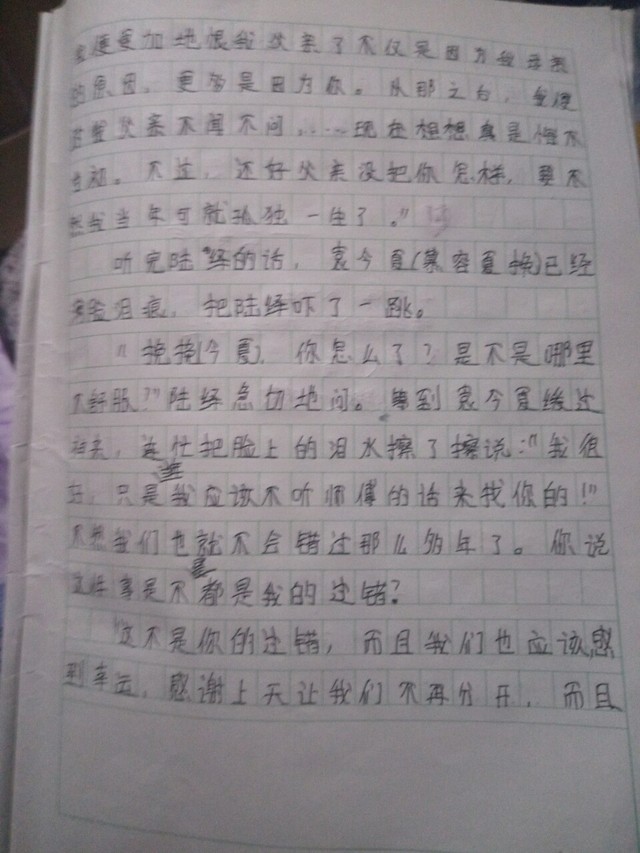 便更加地恨我父亲了不仅是因为我母亲
的原因，更多是因为你。从那之后，我便
对我父亲不闻不问……现在想想真是悔不
当初。不过，还好父亲没把你怎样，要不
然我当年可就孤独一生了。"
听完陆绎的话，袁今夏(慕容夏挽)已经
满脸泪痕，把陆绎吓了一跳。
"挽挽(今夏)，你怎么了？是不是哪里
不舒服？"陆绎急切地问。等到袁今夏缓过
神来，连忙把脸上的泪水擦了擦说："我很
好，只是我应该不听师傅的话来找你的！"
不然我们也就不会错过那么多年了。你说
这件事是不是都是我的过错？
"这不是你的过错，而且我们也应该感
到幸运，感谢上天让我们不再分开，而且